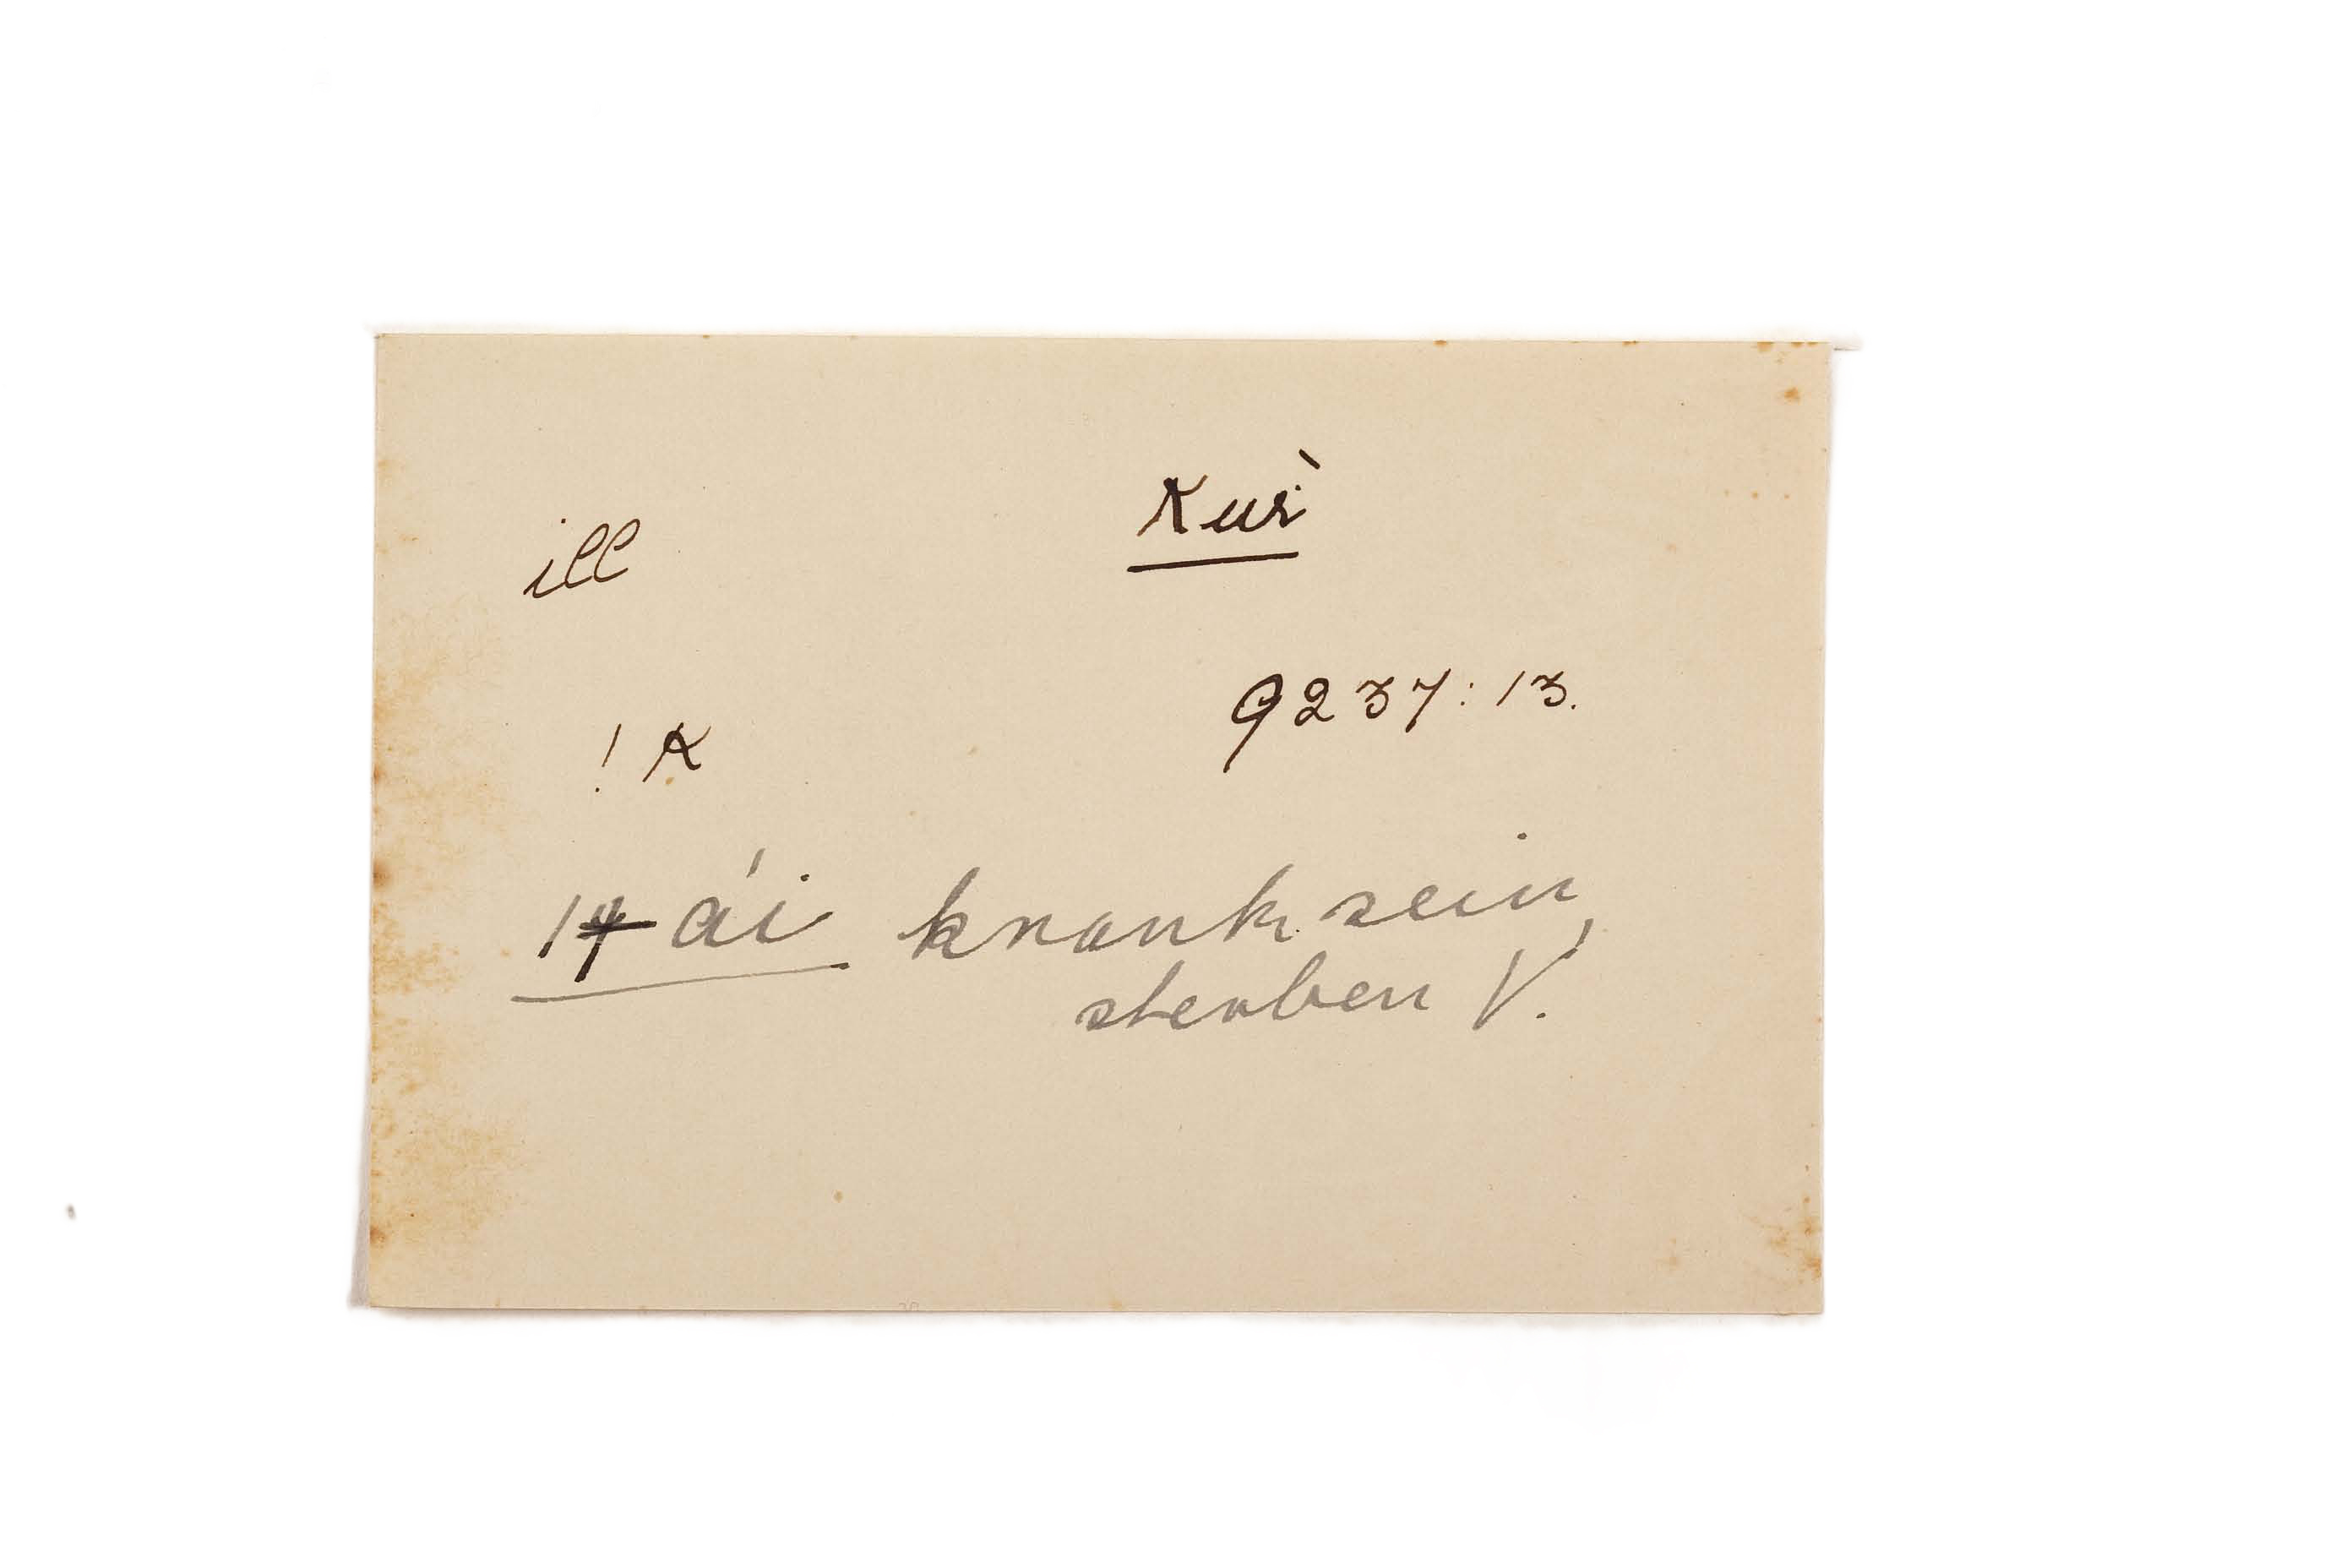 ill
Kuì
9237:13.
! K
ái krank sein,
sterben V.